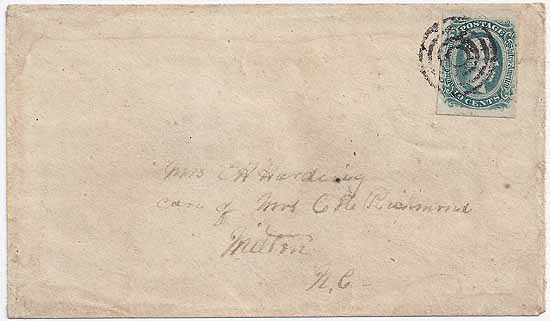 POSTAGE
CENTS
Mrs E H Harding
care of Mrs C H Richmond
Milton
N.C.